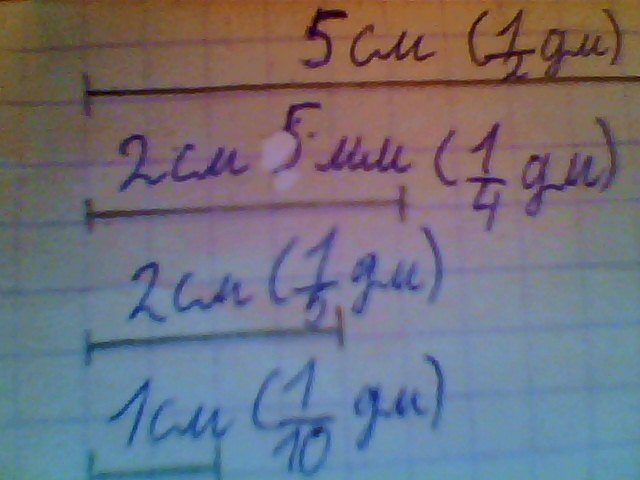 5 см (1/2 дм)
2 см 5 мм (1/4 дм)
2 см (1/5 дм)
1 см (1/10 дм)